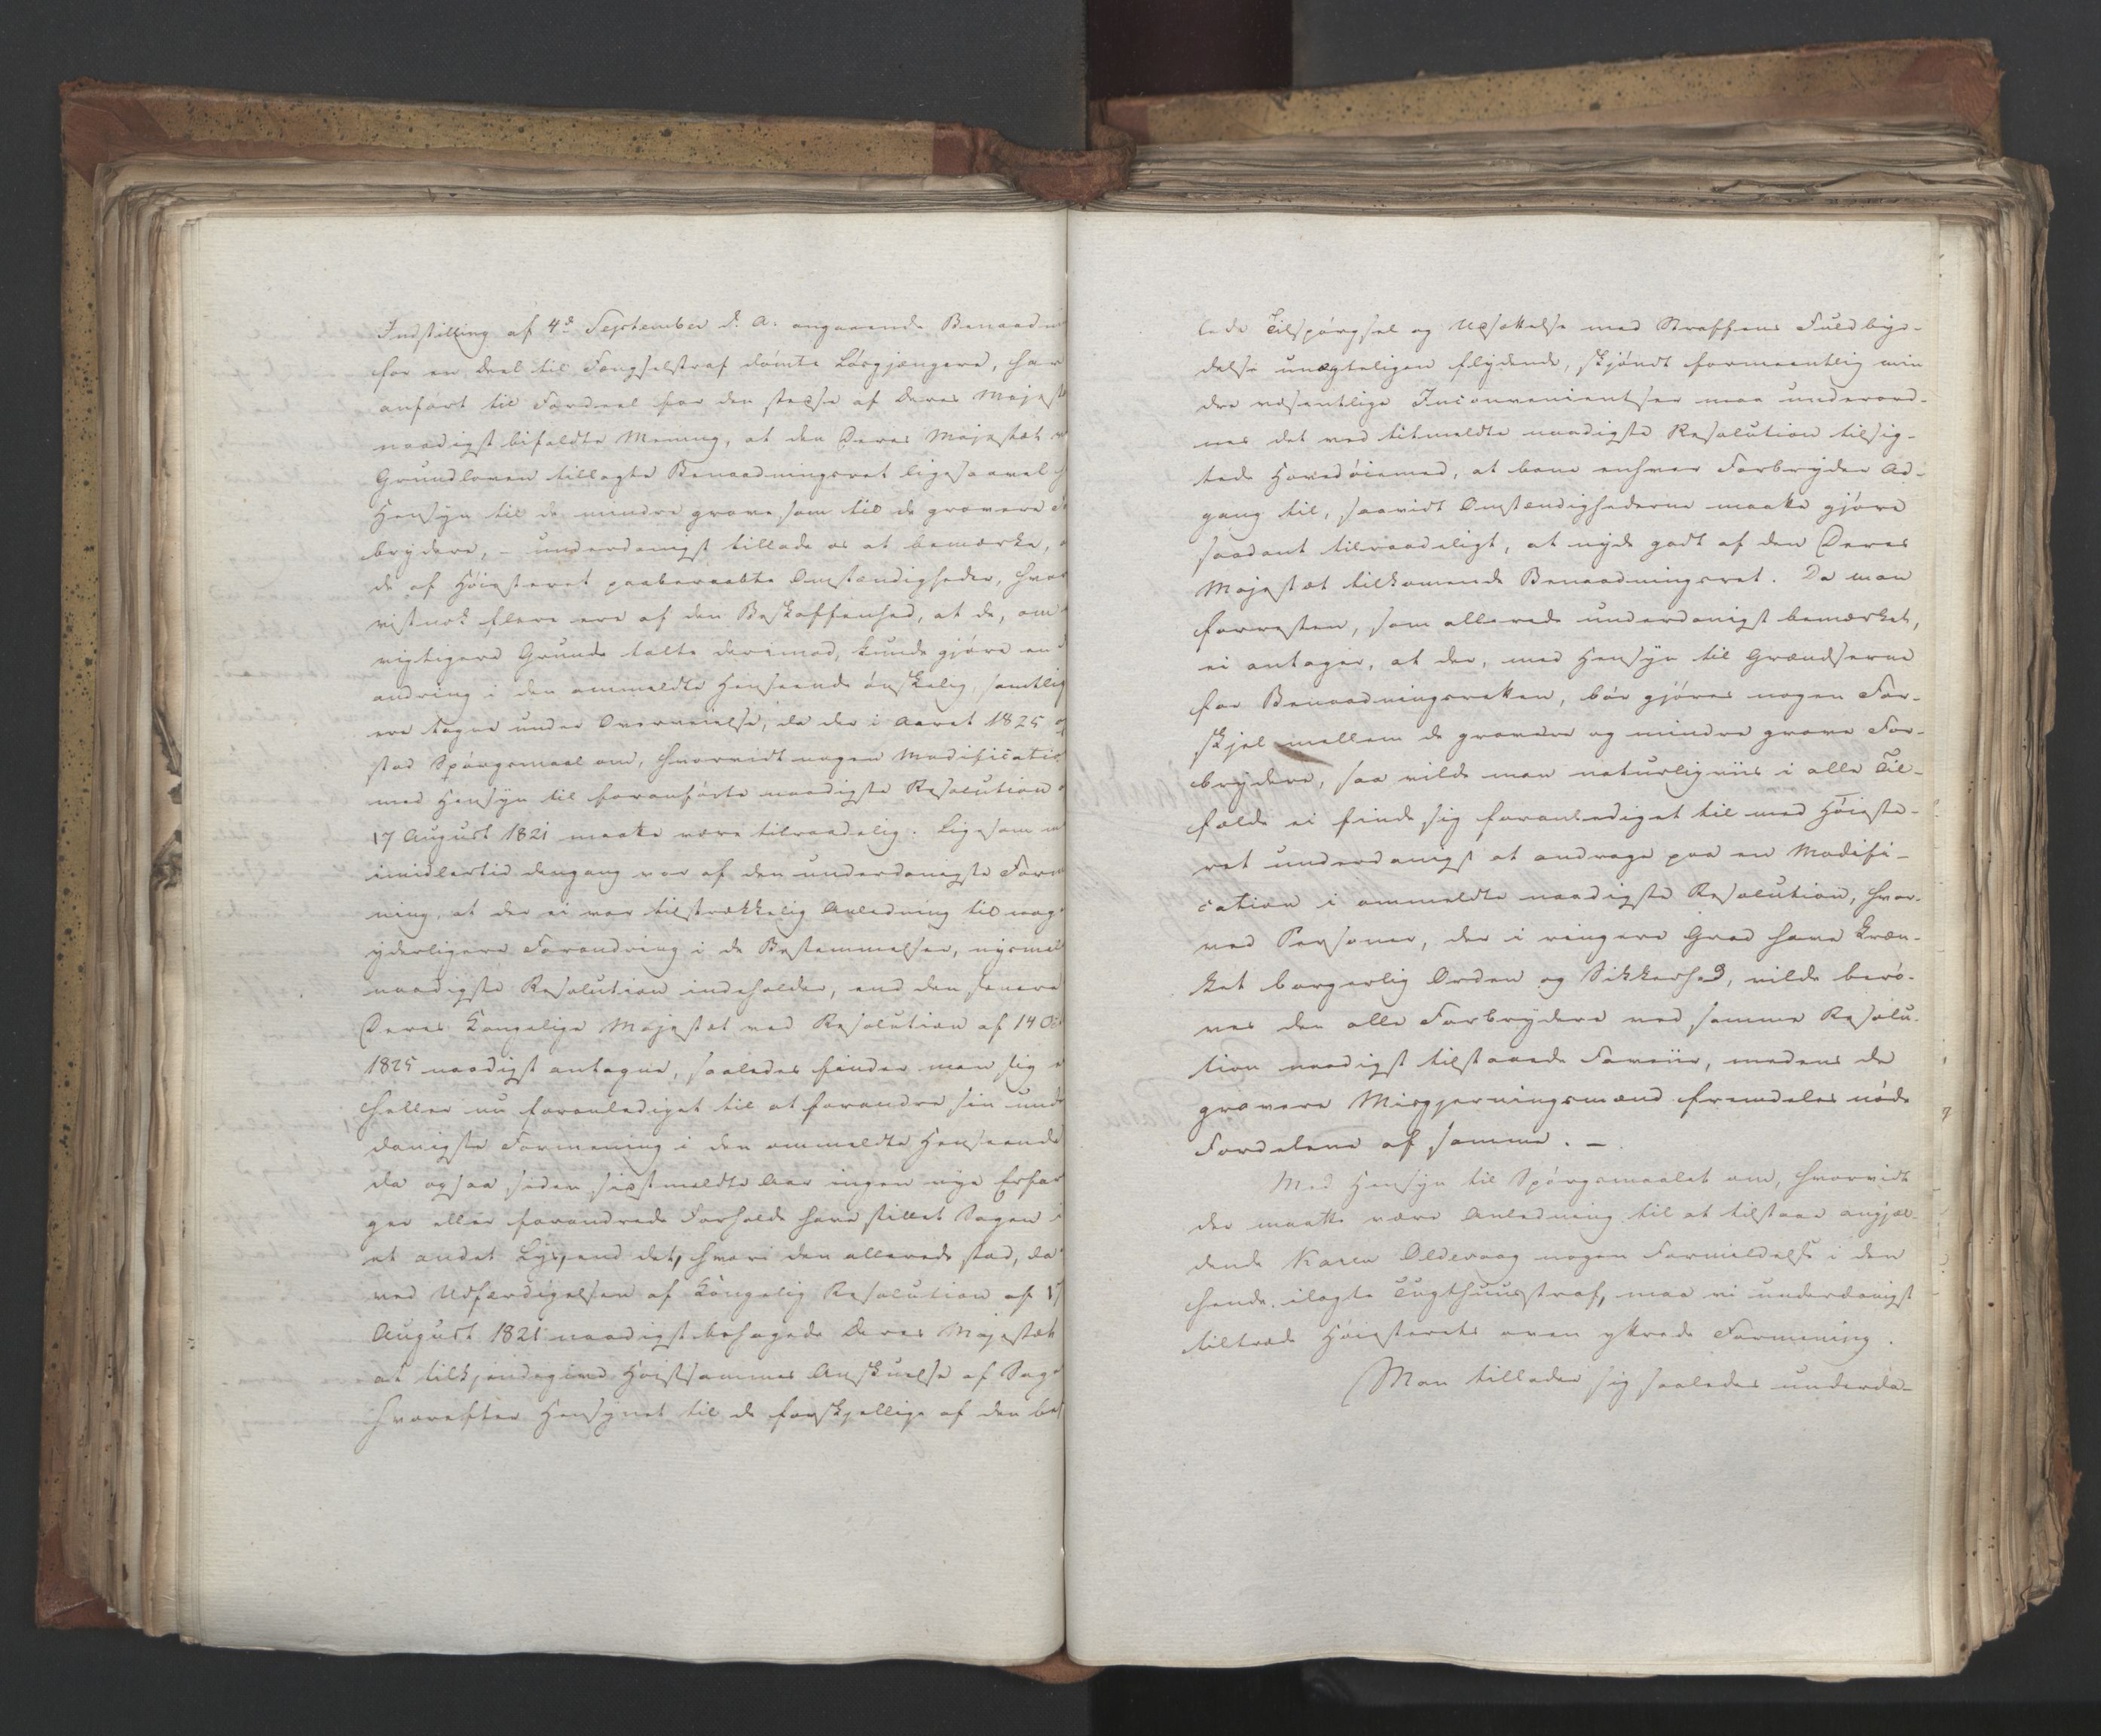 Indstilling af 4de September d. A. angaaende Benaadn
for en Deel til Fængselstraf dømte Løsgjængere, har
anført til Fordeel for den stedse af Deres Majest
naadigst bifaldte Mening, at den Deres Majestæt
Grundloven tillagte Benaadningsret ligesaavel
Hensyn til de mindre grove som til de grovere
brydere, – underdanigst tillade os at bemærke,
de af Høiesteret paaberaabte Omstændigheder, hvor
vistnok flere ere af den Beskaffenhed, at de, om
vigtigere Grunde talte derimod, kunde gjøre en
andring i den ommeldte Henseende ønskelig, samtlig
ere tagne under Overveielse, da der i Aaret 1825
stod Spørgsmaal om, hvorvidt nogen Modificatio
med Hensyn til foranførte naadigste Resolution
17 August 1821 maatte være tilraadelig. Ligesom
imidlertid dengang var af den underdanigste Form
ning, at der ei var tilstrækkelig Anledning til nog
yderligere Forandring i de Bestemmelser, nysmel
naadigste Resolution indeholder, end den senere
Deres Kongelige Majestæt ved Resolution af 14 Oc
1825 naadigst antagne, saaledes finder man sig
heller nu foranlediget til at forandre sin und
danigste Formening i den ommeldte Henseende
da ogsaa siden sidstmeldte Aar ingen nye Erfar
ger eller forandrede Forholde have stillet Sagen i
et andet Lys, end det, hvori den allerede stod, da
ved Udfærdigelsen af Kongelig Resolution af 17
August 1821 naadigst behagede Deres Majestæt
at tilkjendegive Høistsammes Anskuelse af Sag
hvorefter Hensynet til de forskjellige af den be
lede Tilspørgsel og Udsættelse med Straffens Fuldbyr-
delse unægteligen flydende, skjøndt formeentlig min
dre væsentlige Inconvenientser maa underord-
nes det ved titmeldte naadigste Resolution tilsig-
tede Hovedøiemed, at bane enhver Forbryder Ad-
gang til, saavidt Omstændighederne maatte gjøre
saadant tilraadeligt, at nyde godt af den Deres
Majestæt tilkommende Benaadningsret. Da man
forresten, som allerede underdanigst bemærket,
ei antager, at der, med Hensyn til Grændserne
for Benaadningsretten, bør gjøres nogen For-
skjel mellem de grovere og mindre grove For-
brydere, saa vilde man naturligviis i alle Til-
fælde ei finde sig foranlediget til med Høieste-
ret underdanigst at andrage paa en Modifi-
cation i ommeldte naadigste Resolution, hvor-
ved Personer, der i ringere Grad have kræn-
ket borgerlig Orden og Sikkerhed, vilde berø-
ves den alle Forbrydere ved samme Resolu-
tion naadigst tilstaaede Faveur, medens de
grovere Misgjerningsmænd fremdeles nøde
Fordelene af samme. –
Med Hensyn til Spørgsmaalet om, hvorvidt
der maatte være Anledning til at tilstaae angjæl-
dende Karen Oldevaag nogen Formildelse i den
hende ilagte Tugthuusstraf, maa vi underdanigst
tiltræde Høiesterets oven yttrede Formening.
Man tillader sig saaledes underda-